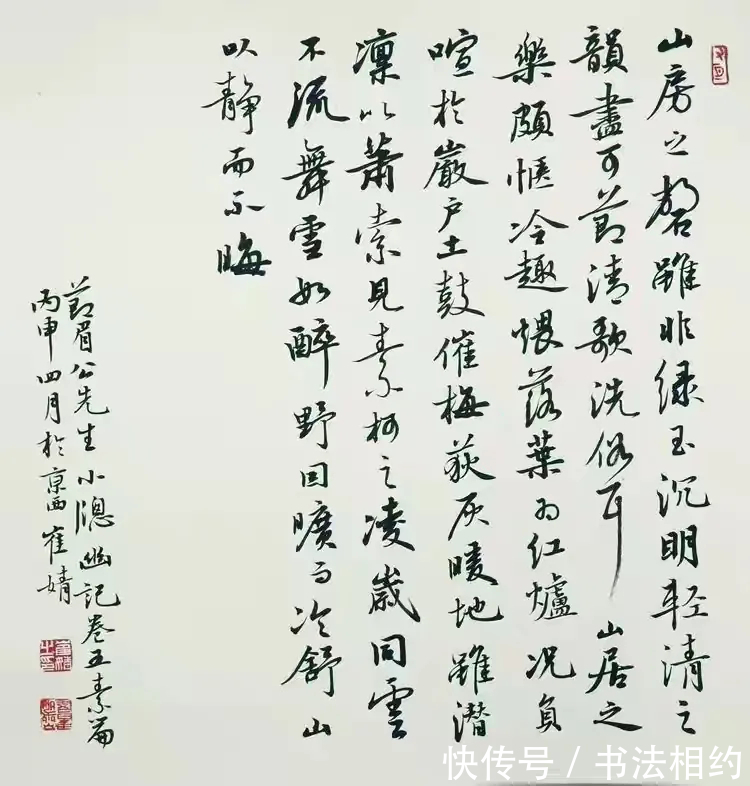 山房之磬雖非绿玉沉明轻清之
韻盡可節清歌洗俗耳山居之
樂頗惬冷趣煨落葉为红爐况負
喧於巖户土鼓催梅荻灰暖地雖潜
凛以蕭索見素柯之凌歲同雲
不流舞雪如醉野因曠而冷舒山
以静而不晦
節眉公先生小窓幽記卷五素篇
丙申四月於京西崔婧
快传号/书法相约